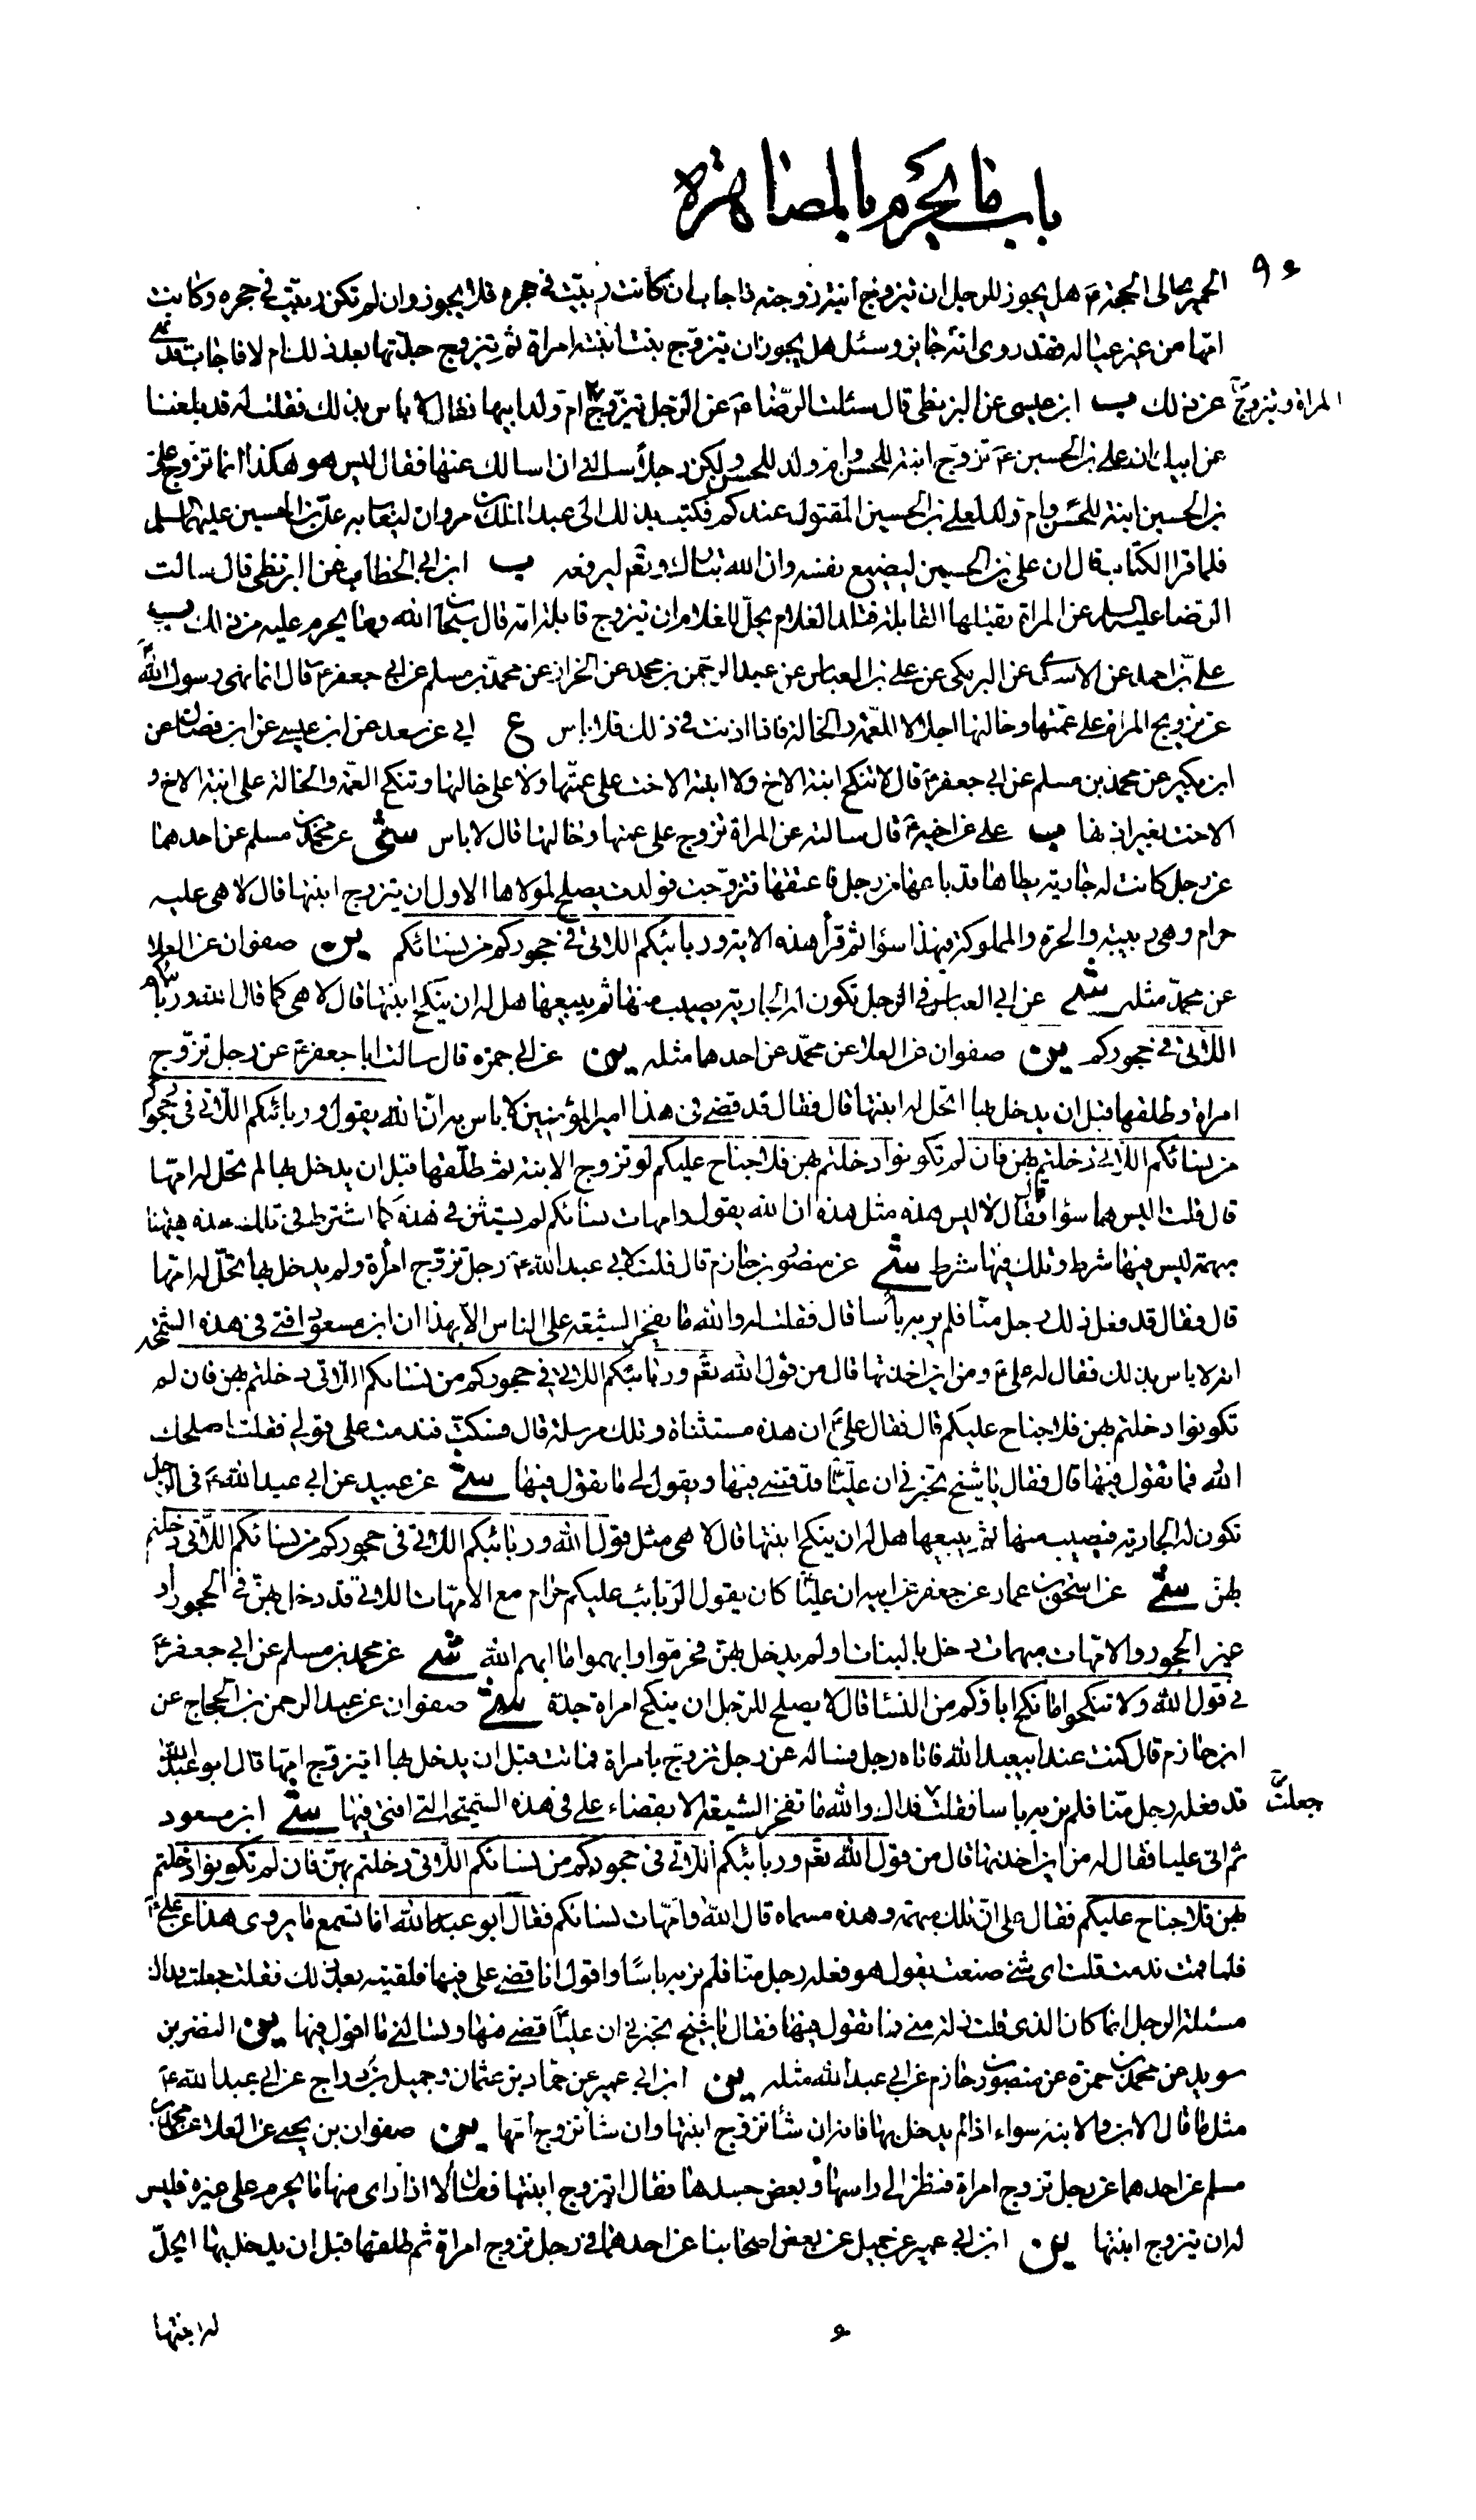 باب ما يحرم بالمصاهرة
الحميري الى الحجة ع هل يجوز للرجل ان يتزوج ابنة زوجته فاجاب ان كانت ربيت في حجره فلا يجوز وان لم تكن ربيت في حجره وكانت
امها من غير عياله فقد روى انه جايز وسئل هل يجوز ان يتزوج بنت ابنة امراة ثم يتزوج جدتها بعد ذلك ام لا فاجاب قد نهى
عن ذلك ب ابن عيسى عن البزنطي قال سئلت الرضا ع عن الرجل يتزوج ام ولد ابيها فقال لا باس بذلك فقلت له قد بلغنا
المراة ويتزوج
عن ابيك ان علي بن الحسين ع تزوج ابنة للحسن وام ولد للحسن ولكن رجلا سالني ان اسالك عنها فقال ليس هو هكذا انما تزوج علي
بن الحسين ابنة للحسن وام ولد لعلي بن الحسين المقتول عندكم فكتب بذلك الى عبد الملك بن مروان ليعاب به علي بن الحسين عليهما السلم
فلما قرا الكتاب قال ان علي بن الحسين ليضيع نفسه وان الله تبارك وتعم ليرفعه ب ابن ابي الخطاب عن البزنطي قال سالت
الرضا عليه السلم عن المراة تقبلها القابلة فتلد الغلام يحل للغلام ان يتزوج قابلة امه قال سبحان الله وما يحرم عليه من ذلك ب
علي بن احمد عن الاسدي عن البرمكي عن علي بن العباس عن عبد الرحمن بن محمد عن الخزاز عن محمد بن مسلم عن ابي جعفر ع قال انما نهى رسول الله
عن تزويج المراة على عمتها وخالتها اجلالا للعمة والخالة فاذا اذنت في ذلك فلا باس ع ابي عن سعد عن ابن عيسى عن ابن فضال عن
ابن بكير عن محمد بن مسلم عن ابي جعفر ع قال لا تنكح ابنة الاخ ولا ابنة الاخت على عمتها ولا على خالتها وتنكح العمة والخالة على ابنة الاخ و
الاخت بغير اذنها ب علي عن اخيه ع قال سالته عن المراة تزوج على عمتها وخالتها قال لا باس شى عن محمد بن مسلم عن احدهما
عن رجل كانت له جارية يطاها قد باعها من رجل فاعتقها فتزوجت فولدت يصلح لمولاها الاول ان يتزوج ابنتها قال لا هي عليه
حرام وهي ربيبته والحرة والمملوكة في هذا سواء ثم قرأ هذه الاية وربائبكم اللاتي في حجوركم من نسائكم ين صفوان عن العلا
عن محمد مثله شى عن ابي العباس في الرجل تكون له الجارية يصيب منها ثم يبيعها هل له ان ينكح ابنتها قال لا هي كما قال الله وربائبكم
اللاتي في حجوركم ين صفوان عن العلا عن محمد عن احدهما مثله ين عن ابي حمزة قال سالت ابا جعفر ع عن رجل تزوج
امراة وطلقها قبل ان يدخل بها اتحل له ابنتها قال فقال قد قضى في هذا امير المؤمنين لا باس به ان الله يقول وربائبكم اللاتي في حجوركم
من نسائكم اللاتي دخلتم بهن فان لم تكونوا دخلتم بهن فلا جناح عليكم لو تزوج الابنة ثم طلقها قبل ان يدخل بها لم تحل له امها
قال قلت اليس هما سواء قال فقال لا ليس هذه مثل هذه ان الله يقول وامهات نسائكم لم يستثن في هذه كما اشترط في تلك هذه هيهنا
مبهمة ليس فيها شرط وتلك فيها شرط شى عن منصور بن حازم قال قلت لابي عبد الله ع رجل تزوج امرأة ولم يدخل بها تحل له امها
قال فقال قد فعل ذلك رجل منا فلم ير به بأسا قال فقلت له والله ما يفخر الشيعة على الناس الا بهذا ان ابن مسعود افتى في هذه الشمخية
انه لا باس بذلك فقال له علي ع ومن اين اخذتها قال من قول الله تعم وربائبكم اللاتي في حجوركم من نسائكم اللاتي دخلتم بهن فان لم
تكونوا دخلتم بهن فلا جناح عليكم قال فقال علي ع ان هذه مستثناة وتلك مرسلة قال فسكت فندمت على قولي فقلت اصلحك
الله فما تقول فيها قال فقال يا شيخ تخبرني ان عليا قد قضى فيها وتقول لي ما تقول فيها شى عن عبيد عن ابي عبد الله ع في الرجل
تكون له الجارية فيصيب منها ثم يبيعها هل له ان ينكح ابنتها قال لا هي مثل قول الله وربائبكم اللاتي في حجوركم من نسائكم اللاتي دخلتم
بهن شى عن اسحق بن عمار عن جعفر عن ابيه ان عليا كان يقول الربائب عليكم حرام مع الامهات اللاتي قد دخل بهن في الحجور او
غير الحجور والامهات مبهمات دخل بالبنات او لم يدخل بهن فحرموا وابهموا ما ابهم الله شى عن محمد بن مسلم عن ابي جعفر ع
في قول الله ولا تنكحوا ما نكح اباؤكم من النسا قال لا يصلح للرجل ان ينكح امراة جده شى صفوان عن عبد الرحمن بن الحجاج عن
ابن حازم قال كنت عند ابيعبد الله فاتاه رجل فساله عن رجل تزوج بامراة فماتت قبل ان يدخل بها ايتزوج امها قال ابو عبد الله
قد فعله رجل منا فلم ير به باسا فقلت فداك والله ما تفخر الشيعة الا بقضاء علي في هذه الشمخية التي افتى فيها شى ابن مسعود
جعلت
ثم اتى عليا فقال له من اين اخذتها قال من قول الله تعم وربائبكم اللاتي في حجوركم من نسائكم اللاتي دخلتم بهن فان لم تكونوا دخلتم
بهن فلا جناح عليكم فقال علي ان تلك مبهمة وهذه مسماه قال الله وامهات نسائكم فقال ابو عبد الله اما تسمع ما يروى هذا عن علي ع
فلما قمت ندمت قلت اى شئ صنعت يقول هو فعله رجل منا فلم ير به باسا واقول انا قضى علي فيها فلقيته بعد ذلك فقلت جعلت فداك
مسئلة الرجل انما كان الذى قلت زلة مني فما تقول فيها فقال يا شيخ تخبرني ان عليا قضى فيها وتسالني ما اقول فيها ين النضر بن
سويد عن محمد بن حمزة عن منصور بن حازم عن ابي عبد الله مثله ين ابن ابي عمير عن حماد بن عثمان وجميل بن دراج عن ابي عبد الله ع
مثل ما قال الابن والابنة سواء اذا لم يدخل بها فانه ان شأ تزوج ابنتها وان شأ تزوج امها ين صفوان بن يحيى عن العلا عن محمد بن
مسلم عن احدهما عن رجل تزوج امراة فنظر الى راسها وبعض جسدها فقال اتتزوج ابنتها فقال لا اذا راى منها ما يحرم على غيره فليس
له ان يتزوج ابنتها ين ابن ابي عمير عن جميل عن بعض اصحابنا عن احدهما في رجل تزوج امراة ثم طلقها قبل ان يدخل بها ايحل
له ابنتها